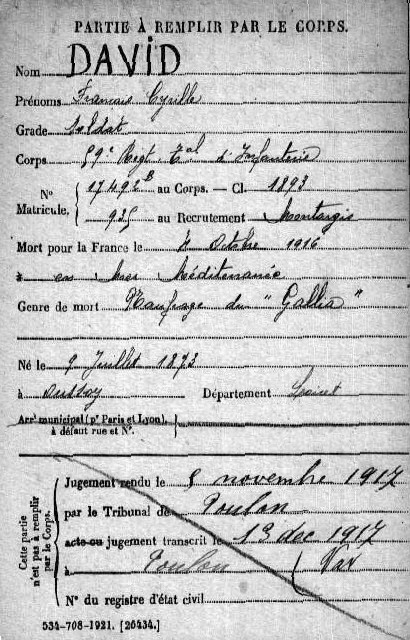 PARTIE À REMPLIR PAR LE CORPS.
Nom DAVID
Prénoms Francois Cyrille
Grade Soldat
Corps 59e Regt Tal d'Infanterie
N° Matricule. 17492B au Corps. — Cl. 1893
935 au Recrutement Montargis
Mort pour la France le 4 Octobre 1916
à en Mer Méditerranée
Genre de mort Naufrage du "Gallia"
Né le 9 Juillet 1873
à Oussoy Département Loiret
Arrt municipal (pr Paris et Lyon), à défaut rue et N°.
Cette partie n'est pas à remplir par le Corps.
Jugement rendu le 8 novembre 1917
par le Tribunal de Toulon
acte ou jugement transcrit le 13 dec 1917
à Toulon (Var
N° du registre d'état civil
534-708-1921. [26434.]